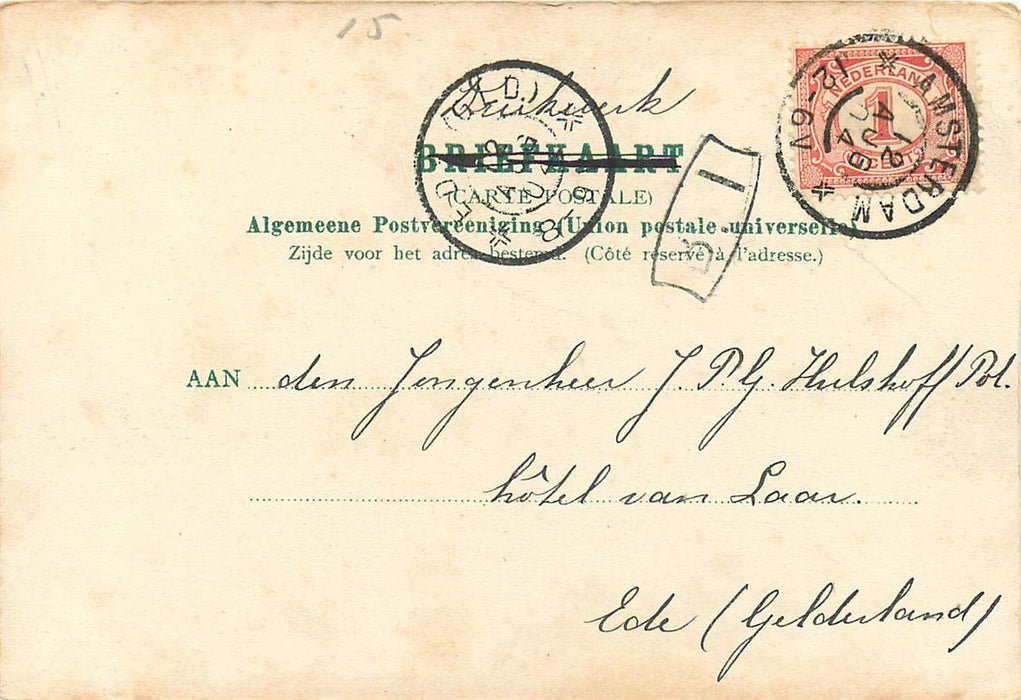 15
Drukwerk
BRIEFKAART
(CARTE POSTALE)
Algemeene Postvereeniging (Union postale universelle)
Zijde voor het adres bestemd. (Côté réservé à l'adresse.)
AAN den Jongenheer J. P. G. Hulshoff Pol.
hôtel van Laar.
Ede (Gelderland)
NEDERLAND
1
AMSTERDAM
12-6V
6-8